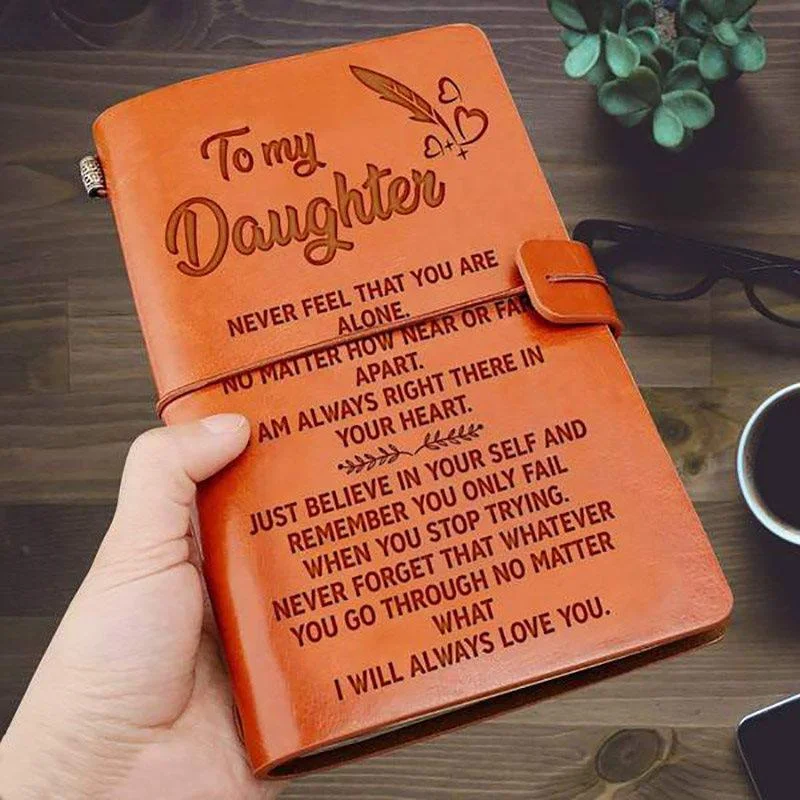 To my
Daughter
NEVER FEEL THAT YOU ARE
ALONE.
NO MATTER HOW NEAR OR FAR
APART.
AM ALWAYS RIGHT THERE IN
YOUR HEART.
JUST BELIEVE IN YOUR SELF AND
REMEMBER YOU ONLY FAIL
WHEN YOU STOP TRYING.
NEVER FORGET THAT WHATEVER
YOU GO THROUGH NO MATTER
WHAT
I WILL ALWAYS LOVE YOU.